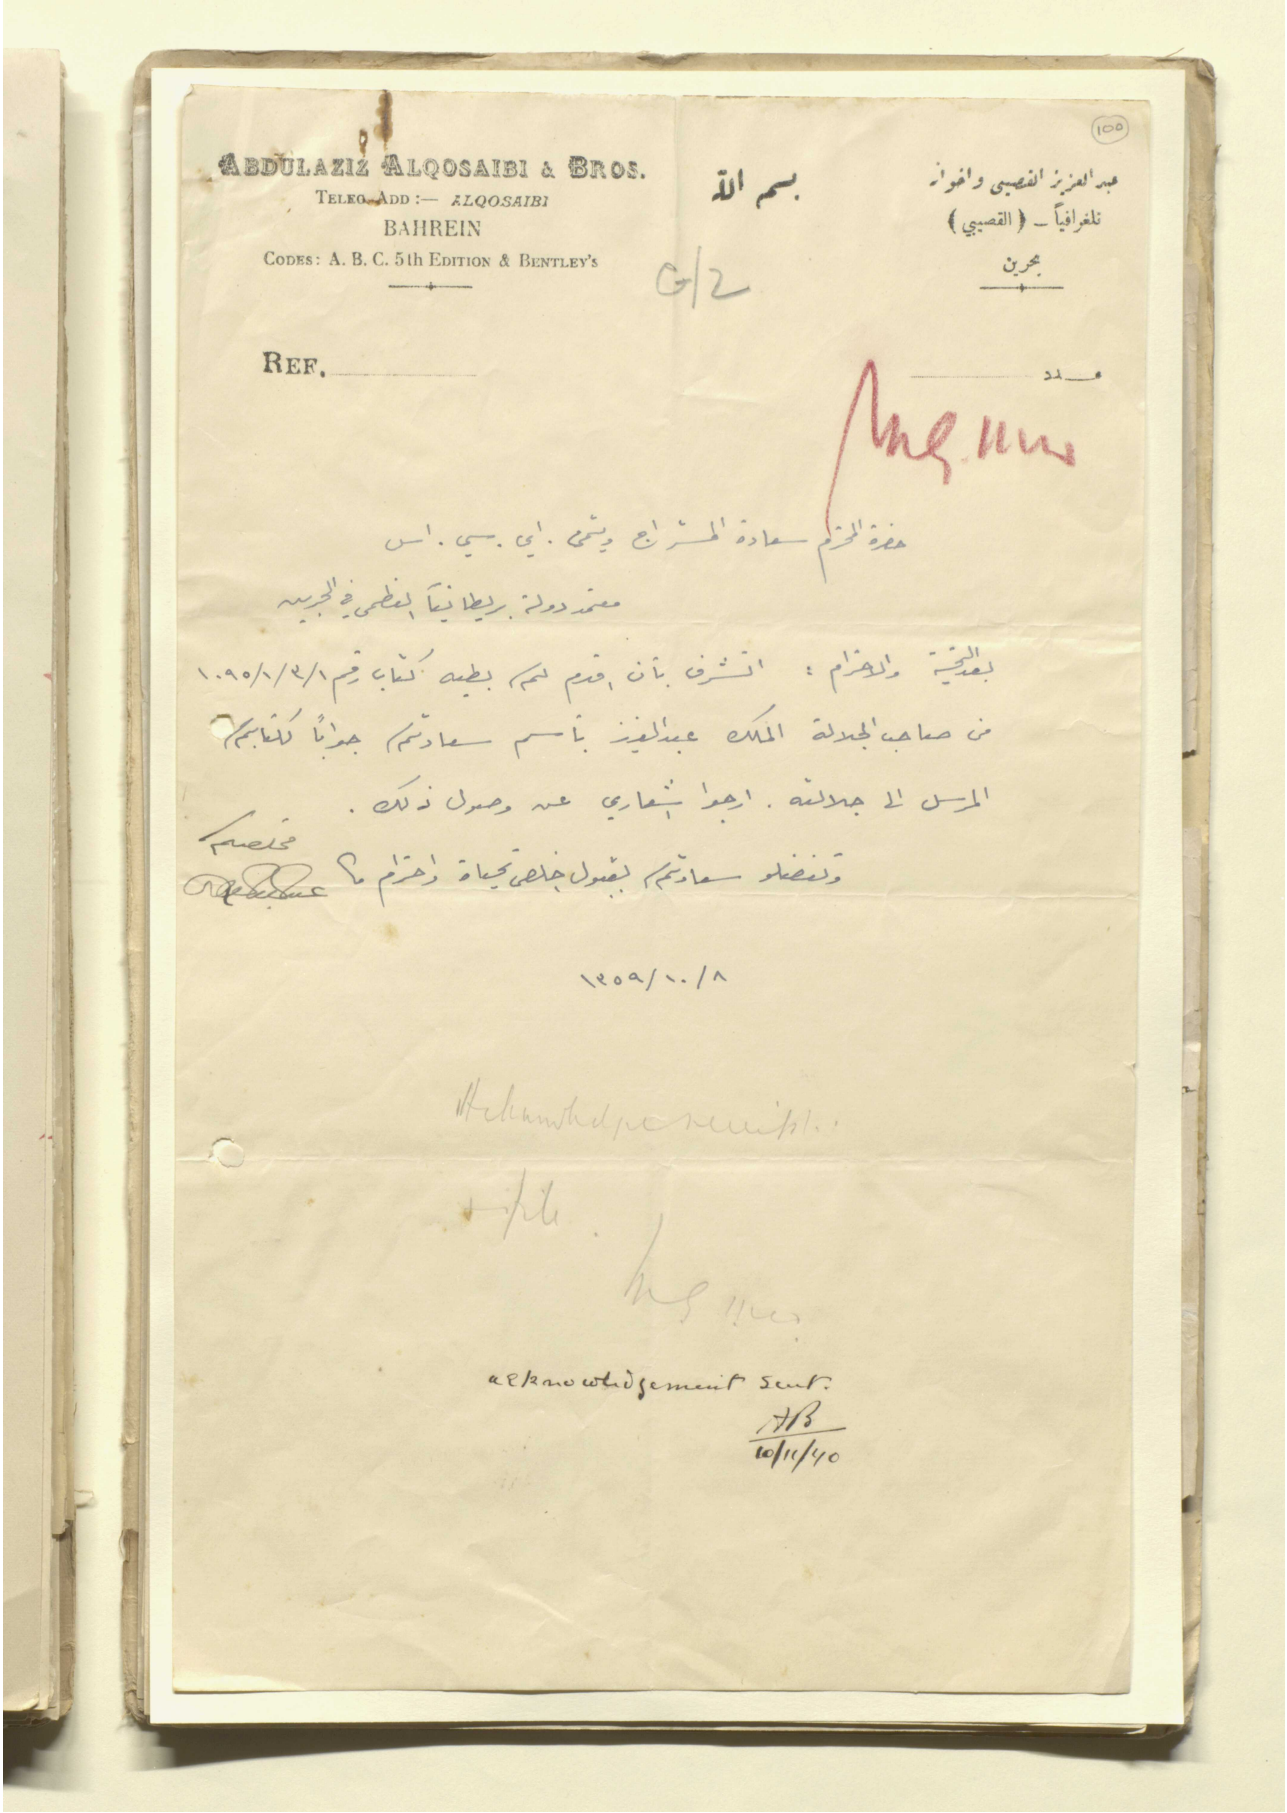 100
ABDULAZIZ ALQOSAIBI & BROS.
TELEG. ADD :— ALQOSAIBI
BAHREIN
CODES: A. B. C. 5th EDITION & BENTLEY'S
بسم الله
عبد العزيز القصيبي واخوانه
تلغرافياً — (القصيبي)
بحرين
G/2
REF.
عدد
حضرة المحترم سعادة المستر اج ويتمن . اي . سي . اس
معتمد دولة بريطانيا العظمى في البحرين
بعد التحية والاحترام : اتشرف بان اقدم لكم بطيه كتاب رقم ١٠٩٥/١/٣/١
من صاحب الجلالة الملك عبد العزيز باسم سعادتكم جواباً لكتابكم
المرسل الى جلالته . ارجوا اشعاري عن وصول ذلك .
وتفضلو سعادتكم بقبول خلص تحياة واحترام
مخلصكم
١٣٥٩/١٠/٨
Acknowledge receipt.
+ file.
acknowledgement sent.
AB
10/11/40